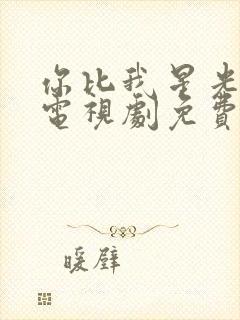 你比我星光
電視劇免費
暖壁